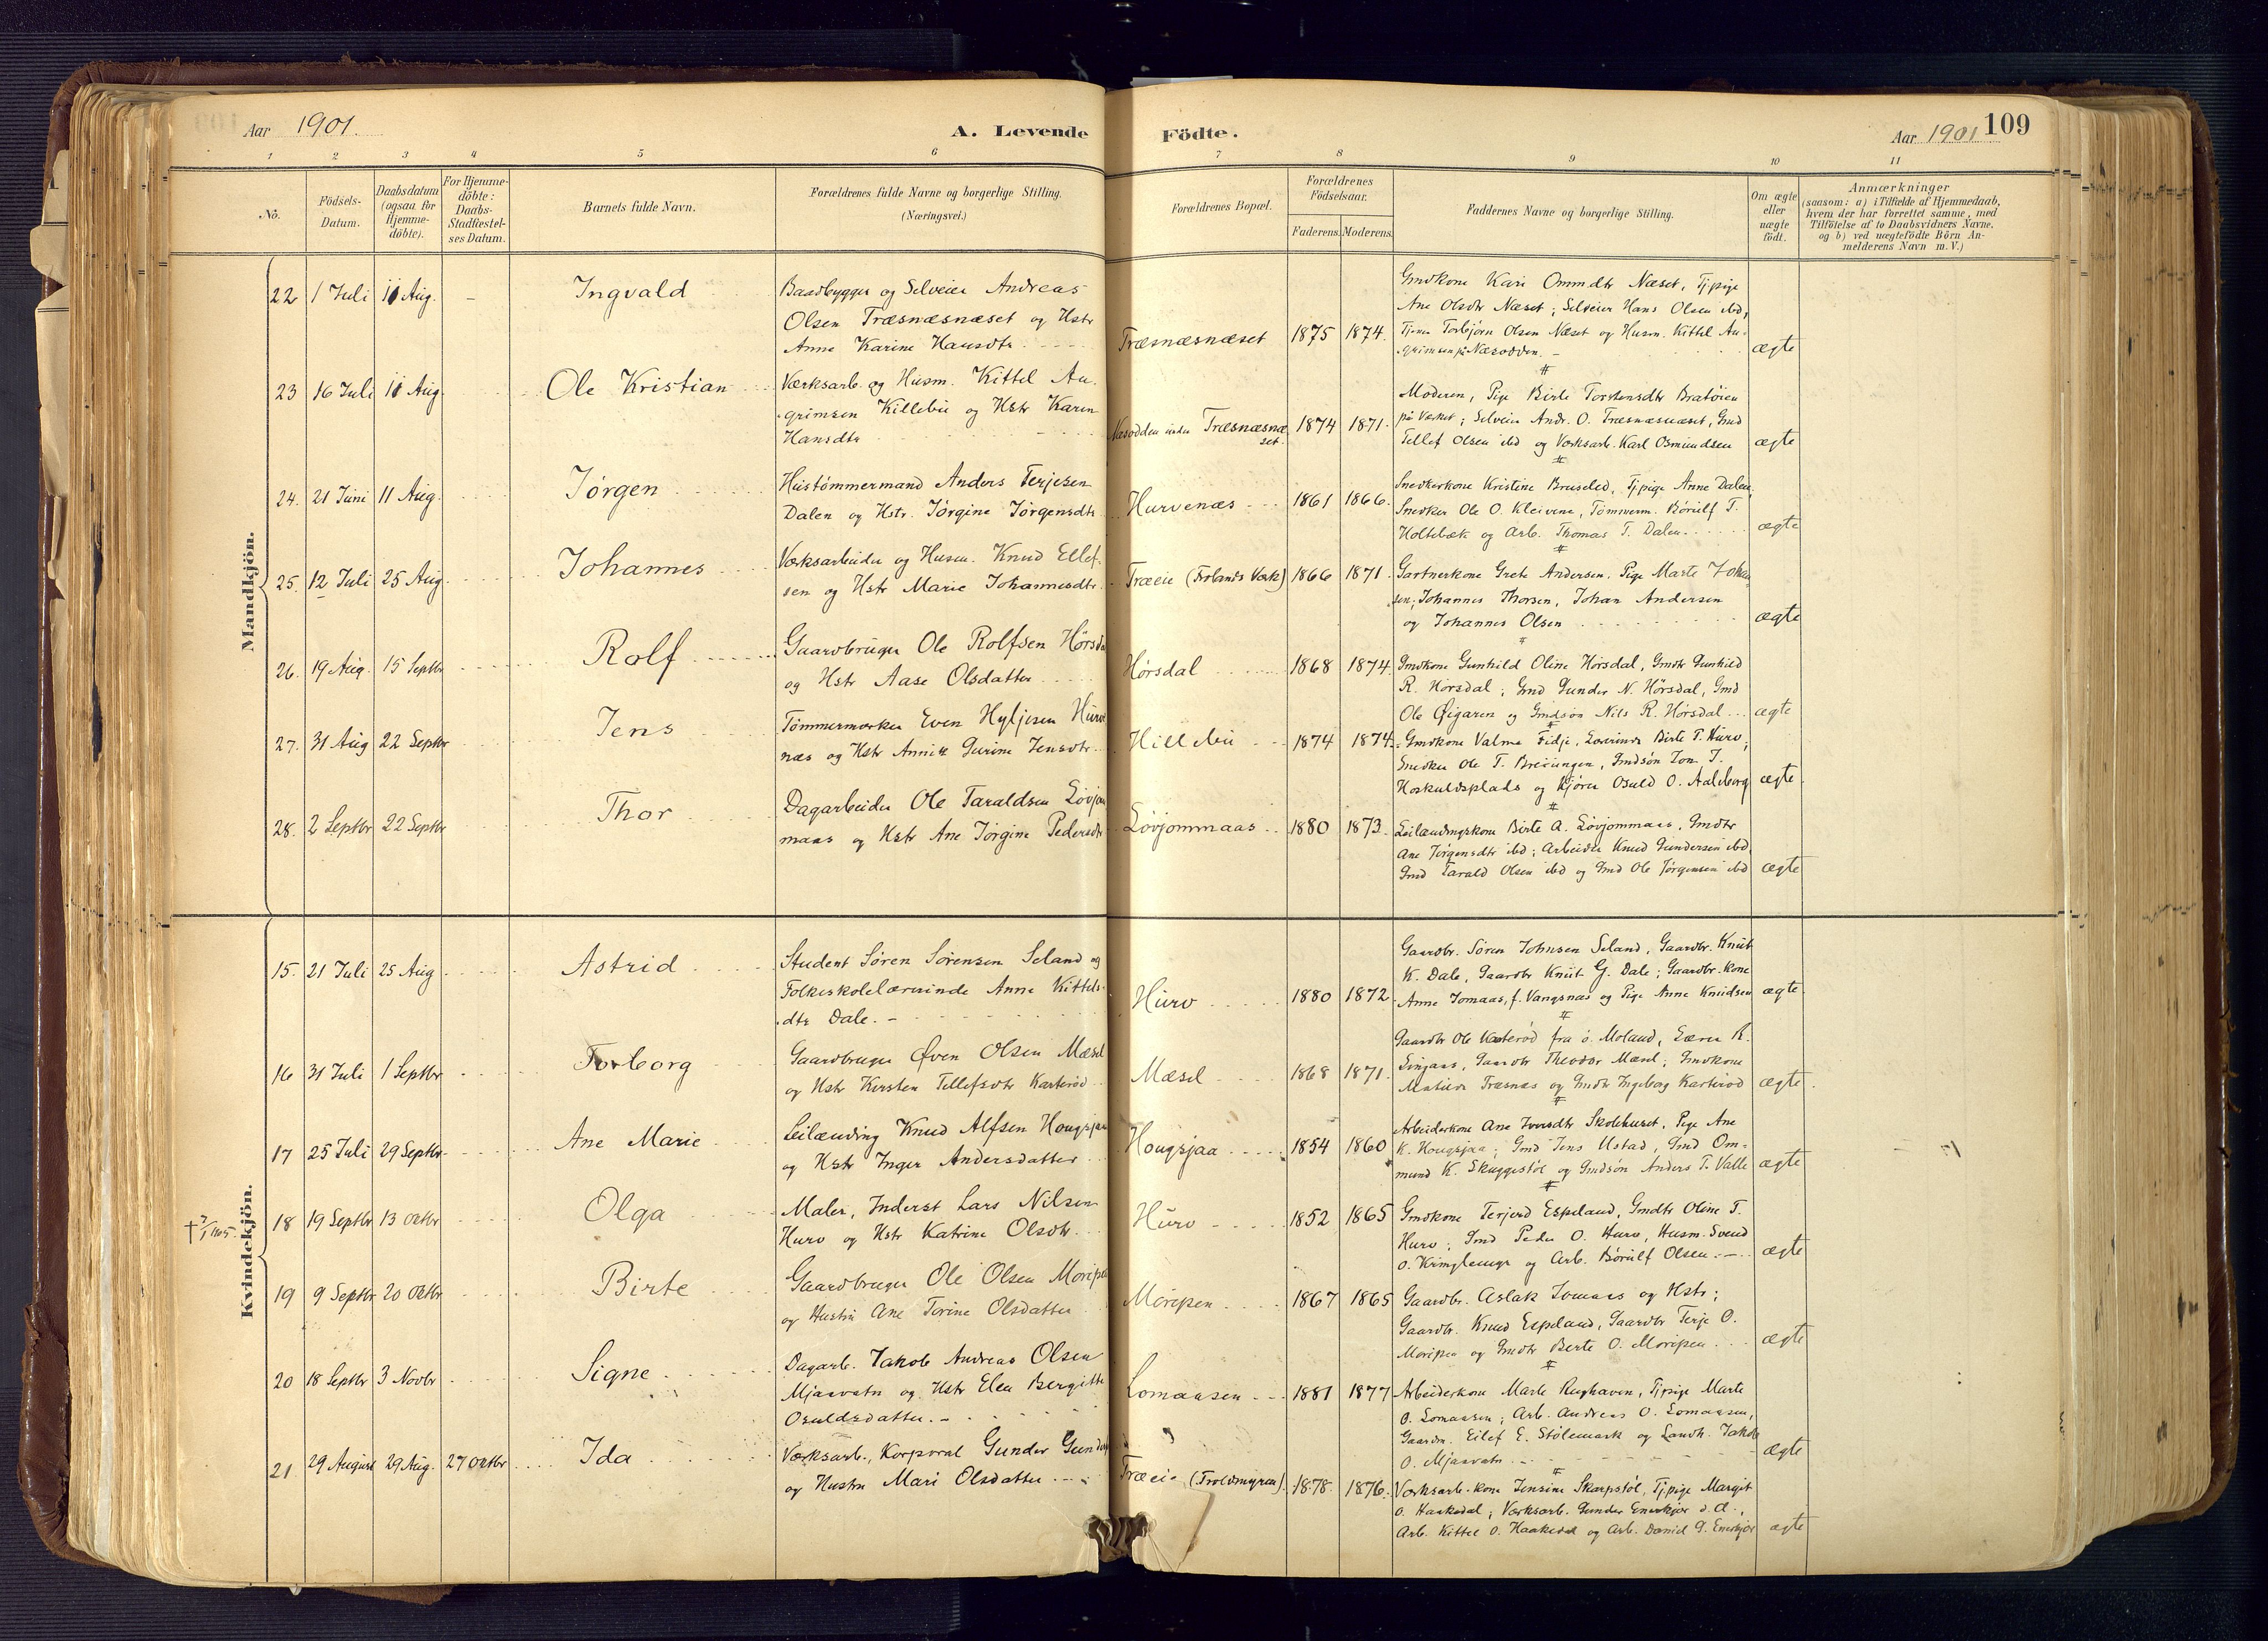 Aar 1901.
A. Levende Födte.
Aar 1901 109
1 2 3 4 5 6 7 8 9 10 11
No.
Födsels-
Datum.
Daabsdatum
(ogsaa for
Hjemme-
döbte).
For Hjemme-
döbte:
Daabs-
Stadfæstel-
ses Datum.
Barnets fulde Navn.
Forældrenes fulde Navne og borgerlige Stilling.
(Næringsvei.)
Forældrenes Bopæl.
Forældrenes
Födselsaar.
Faderens. Moderens.
Faddernes Navne og borgerlige Stilling.
Om ægte
eller
uægte
födt.
Anmærkninger
(saasom: a) i Tilfælde af Hjemmedaab,
hvem der har forrettet samme, med
Tilföielse af to Daabsvidners Navne,
og b) ved uægtefödte Börn An-
melderens Navn m. V.)
Mandkjön.
22 1 Juli 11 Aug. - Ingvald
Baadbygger og Selveier Andreas
Olsen Træsnæsnæset og Hstr
Anne Karine Hansdtr.
Træsnæsnæset 1875 1874.
Gmdkone Kari Ommdtr Næset, Tjpige
Ane Olsdtr Næset; Selveier Hans Olsen ibd,
Tjener Torbjørn Olsen Næset og Husm. Kittel Au-
grimsen på Næsodden. -
ægte
23 16 Juli 11 Aug. Ole Kristian
Værksarb. og Husm. Kittel Au-
grimsen Killebu og Hstr Karen
Hansdtr
Næsodden under Træsnæsnæ
set. 1874 1871.
Moderen, Pige Birte Torstensdtr Bratøien
på Værket; Selveier Andr. O. Træsnæsnæset, Gmd
Tellef Olsen ibd og Værksarb. Karl Osmundsen
ægte
24. 21 Juni 11 Aug. Jørgen
Hustømmermand Anders Terjesen
Dalen og Hstr. Jørgine Jørgensdtr
Hurvenæs 1861 1866.
Snedkerkone Kristine Bruseled, Tjpige Anne Dalen,
Snedker Ole O. Kleivene, Tømmerm. Børulf T.
Holtebæk og Arb. Thomas T. Dalen.
ægte
25. 12 Juli 25 Aug. Johannes
Værksarbeider og Husm. Knud Ellef-
sen og Hstr Marie Johannesdtr
Træeie (Frolands Værk) 1866 1871.
Gartnerkone Grete Andersen, Pige Marte Johan-
sen; Johannes Thorsen, Johan Andersen
og Johannes Olsen
ægte
26. 19 Aug. 15 Septbr Rolf
Gaardbruger Ole Rolfsen Hørsdal
og Hstr Aase Olsdatter
Hørsdal 1868 1874.
Gmdkone Gunhild Oline Hørsdal, Gmdtr Gunhild
R. Hørsdal; Gmd Gunder N. Hørsdal, Gmd
Ole Øigaren og Gmdsøn Nils R. Hørsdal
ægte
27. 31 Aug 22 Septbr Jens
Tømmermærker Even Hyljesen Hurve
næs og Hstr Anne Gurine Jensdtr
Hillebu 1874 1874.
Gmdkone Valme Fidje, Lærerinde Birte T. Hurv;
Snedker Ole T. Breiungen, Gmdsøn Jon J.
Hoskuldsplads og Kjører Osuld O. Aaleborg
ægte
28. 2 Septbr 22 Septbr Thor
Dagarbeider Ole Taraldsen Løvjom
maas og Hstr Ane Jørgine Pedersdtr
Løvjommaas 1880 1873.
Leilændingskone Birte A. Løvjommaas, Gmdtr
Ane Jørgensdtr ibd; Arbeider Knud Gundersen ibd.
Gmd Tarald Olsen ibd og Gmd Ole Jørgensen ibd
ægte
Kvindekjön.
15. 21 Juli 25 Aug Astrid
Student Søren Sørensen Seland og
Folkeskolelærerinde Anne Kittels-
dtr Dale. -
Hurv 1880 1872
Gaardbr. Søren Johnsen Seland, Gaardbr. Knut
K. Dale, Gaardbr Knut G. Dale; Gaardbr. kone
Anne Jomaas, f. Vangsnæs og Pige Anne Knudsen
ægte
16 31 Juli 1 Septbr Torborg
Gaardbruger Øven Olsen Mæsel
og Hstr Kirsten Tellefsdtr Kasterød
Mæsel 1868 1871.
Gaardbr Ole Kasterød fra ø. Moland, Lærer R.
Linjaas, Gaardbr Theodor Mæsel; Gmdkone
Matilde Træsnæs og Gmdtr Ingeborg Kasterød
ægte
17 25 Juli 29 Septbr. Ane Marie
Leilænding Knud Alfsen Hougsjaa
og Hstr Inger Andersdatter
Hougsjaa 1854 1860
Arbeiderkone Ane Iversdtr Skolehuset, Pige Ane
K. Hougsjaa; Gmd Jens Ustad, Gmd Om-
mund K. Skuggestøl og Gmdsøn Anders T. Valle
ægte
18 19 Septbr 13 Oktbr Olga
Maler, Inderst Lars Nilsen
Hurv og Hstr Katrine Olsdtr
Hurv 1852 1865
Gmdkone Terjerd Espeland, Gmdtr Oline T.
Hurv; Gmd Peder O. Hurv, Husm. Svend
O. Kringlemyr og Arb. Børulf Olsen. -
ægte
19 9 Septbr 20 Oktbr Birte
Gaardbruger Ole Olsen Moripen
og Hustru Ane Torine Olsdatter
Moripen 1867 1865
Gaardbr. Aslak Jomaas og Hstr;
Gaardbr. Knud Espeland, Gaardbr Terje O.
Moripen og Gmdtr Berte O. Moripen
ægte
20 18 Septbr 3 Novbr Signe
Dagarb. Jakob Andreas Olsen
Mjaavatn og Hstr Elen Bergitte
Osuldsdatter. -
Lomaasen 1881 1877
Arbeiderkone Marte Rughaven, Tjpige Marte
O. Lomaasen; Arb. Andreas O. Lomaasen,
Gaardm. Eilef E. Stølemark og Landh. Jakob
O. Mjaavatn
ægte
21. 29 August 29 Aug. 27 Oktbr Ida
Værksarb., Korporal Gunder Gunders
og Hustru Mari Olsdatter
Træeie (Troldmyren) 1878. 1876.
Værksarb. kone Jensine Skarpstøl, Tjpige Margit
O. Haakedal; Værksarb. Gunder Enerkjær d. æ.,
Arb. Kittel O. Haakedal og Arb. Daniel G. Enerkjær
ægte